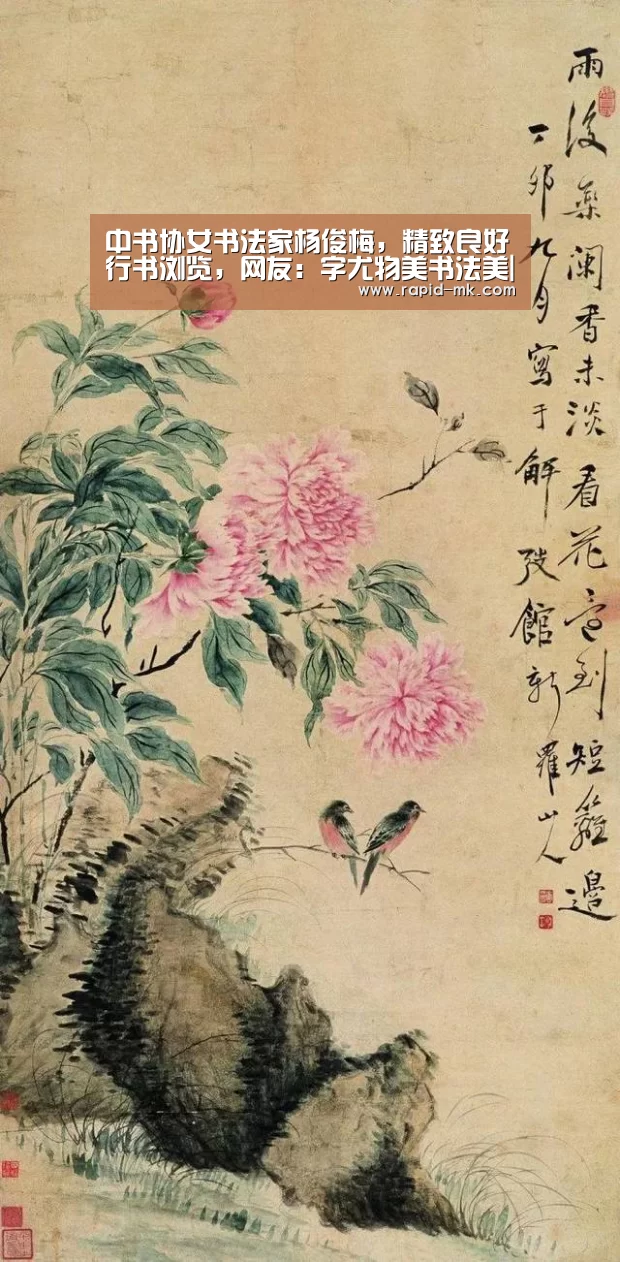 中书协女书法家杨俊梅，精致良好
行书浏览，网友：字尤物美书法美|
www.rapid-mk.com
雨後藥闌香未淡看花宜到短籬邊
丁卯九月寫于解弢館新羅山人